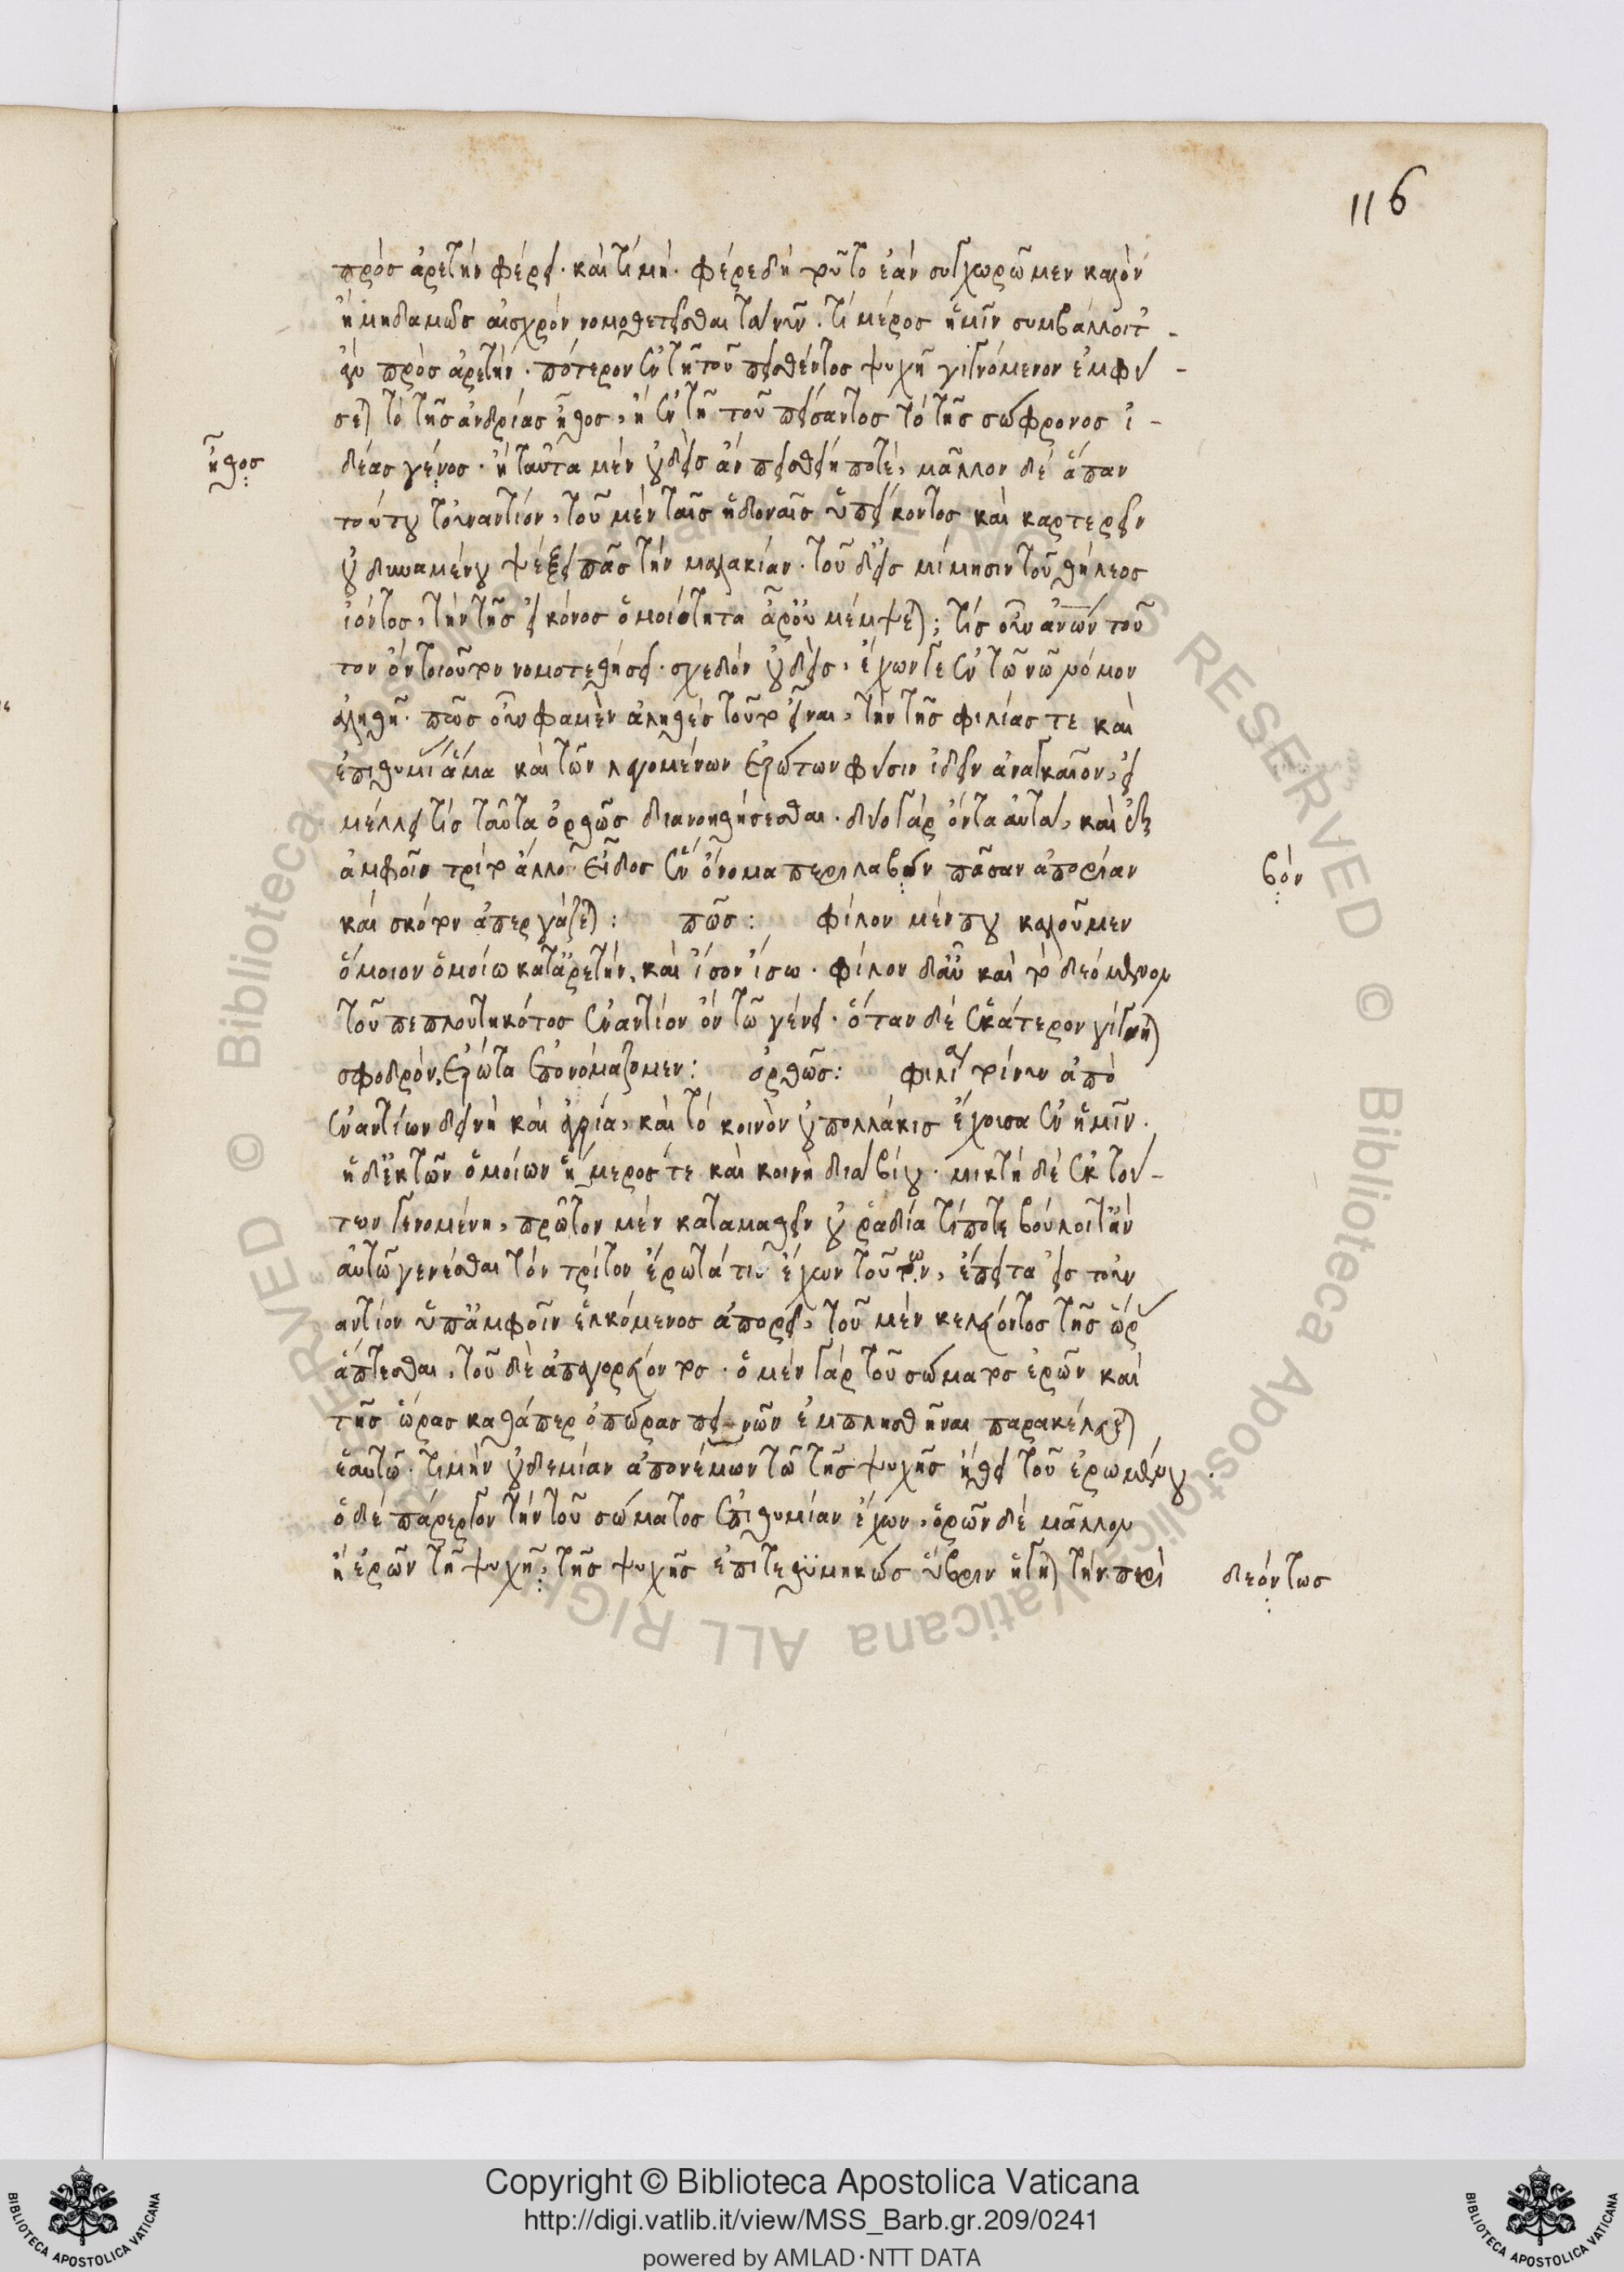 116
πρὸς ἀρετὴν φέρει. καὶ τί μή. φέρε δὴ τοῦτο ἐὰν συγχωρῶμεν καλὸν
ἢ μηδαμῶς αἰσχρὸν νομοθετεῖσθαι τὰ νῦν. τί μέρος ἡμῖν συμβάλλοιτ
ἂν πρὸς ἀρετήν. πότερον ἐν τῇ τοῦ πεισθέντος ψυχῇ γιγνόμενον ἐμφύ-
σεται τὸ τῆς ἀνδρίας ἦθος, ἢ ἐν τῇ τοῦ πείσαντος τὸ τῆς σώφρονος ἰ-
ἦθος
δέας γένος. ἢ ταῦτα μὲν οὐδεὶς ἂν πεισθείη ποτέ, μᾶλλον δὲ ἅπαν
τούτου τοὐναντίον, τοῦ μὲν ταῖς ἡδοναῖς ὑπείκοντος καὶ καρτερεῖν
οὐ δυναμένου ψέξει πᾶς τὴν μαλακίαν. τοῦ δ' εἰς μίμησιν τοῦ θήλεος
ἰόντος, τὴν τῆς εἰκόνος ὁμοιότητα ἆρ' οὐ μέμψεται; τίς οὖν ἀνων τοῦ
τον ὄν τοιοῦτον νομοτεθήσει. σχεδὸν οὐδεὶς, ἔχων γε ἐν τῷ νῷ νόμον
ἀληθῆ. πῶς οὖν φαμὲν ἀληθές τοῦτο εἶναι, τὴν τῆς φιλίας τε καὶ
ἐπιθυμίας ἅμα καὶ τῶν λεγομένων ἐρώτων φύσιν ἰδεῖν ἀναγκαῖον, εἰ
μέλλει τίς ταῦτα ὀρθῶς διανοηθήσεσθαι. δύο γὰρ ὄντα αὐτά, καὶ ἐξ
ἀμφοῖν τρίτο ἄλλο εἶδος ἓν ὄνομα περιλαβὼν πᾶσαν ἀπορίαν
βόν
καὶ σκότον ἀπεργάζεται: πῶς: φίλον μέν που καλοῦμεν
ὅμοιον ὁμοίω κατ' ἀρετήν, καὶ ἴσον ἴσω. φίλον δ' αὖ καὶ τὸ δεόμενον
τοῦ πεπλουτηκότος ἐναντίον ὂν τῷ γένει. ὅταν δὲ ἑκάτερον γίγνηται
σφοδρόν, ἔρωτα ἐπονόμαζομεν: ὀρθῶς: φιλία τοίνυν ἀπὸ
ἐναντίων δεινὴ καὶ ἀγρία, καὶ τὸ κοινὸν οὐ πολλάκις ἔχουσα ἐν ἡμῖν.
ἡ δ' ἐκ τῶν ὁμοίων ἥμερος τε καὶ κοινὴ διὰ βίου. μικτὴ δὲ ἐκ τού-
των γενομένη, πρῶτον μὲν καταμαθεῖν οὐ ῥαδία τί ποτε βούλοιτ' ἂν
αὑτῷ γενέσθαι τὸν τρίτον ἔρωτά τις ἔχων τοῦτον, ἔπειτα εἰς τοὐν
αντίον ὑπ' ἀμφοῖν ἑλκόμενος ἀπορεῖ, τοῦ μὲν κελεύοντος τῆς ὥρας
ἅπτεσθαι, τοῦ δὲ ἀπαγορεύοντος. ὁ μὲν γὰρ τοῦ σώματος ἐρῶν καὶ
τῆς ὥρας καθάπερ ὀπώρας πεινῶν ἐμπλησθῆναι παρακελεύεται
ἑαυτῷ. τιμὴν οὐδεμίαν ἀπονέμων τῷ τῆς ψυχῆς ἤθει τοῦ ἐρωμένου.
ὁ δὲ πάρεργον τὴν τοῦ σώματος ἐπιθυμίαν ἔχων, ὁρῶν δὲ μᾶλλον
ἢ ἐρῶν τῇ ψυχῇ, τῆς ψυχῆς ἐπιτεθυμηκὼς ὕβριν ἥγηται τὴν περὶ
δεόντως
Copyright © Biblioteca Apostolica Vaticana
http://digi.vatlib.it/view/MSS_Barb.gr.209/0241
powered by AMLAD·NTT DATA
BIBLIOTECA APOSTOLICA VATICANA
BIBLIOTECA APOSTOLICA VATICANA
© Biblioteca Apostolica Vaticana ALL RIGHTS RESERVED
© Biblioteca Apostolica Vaticana ALL RIGHTS RESERVED